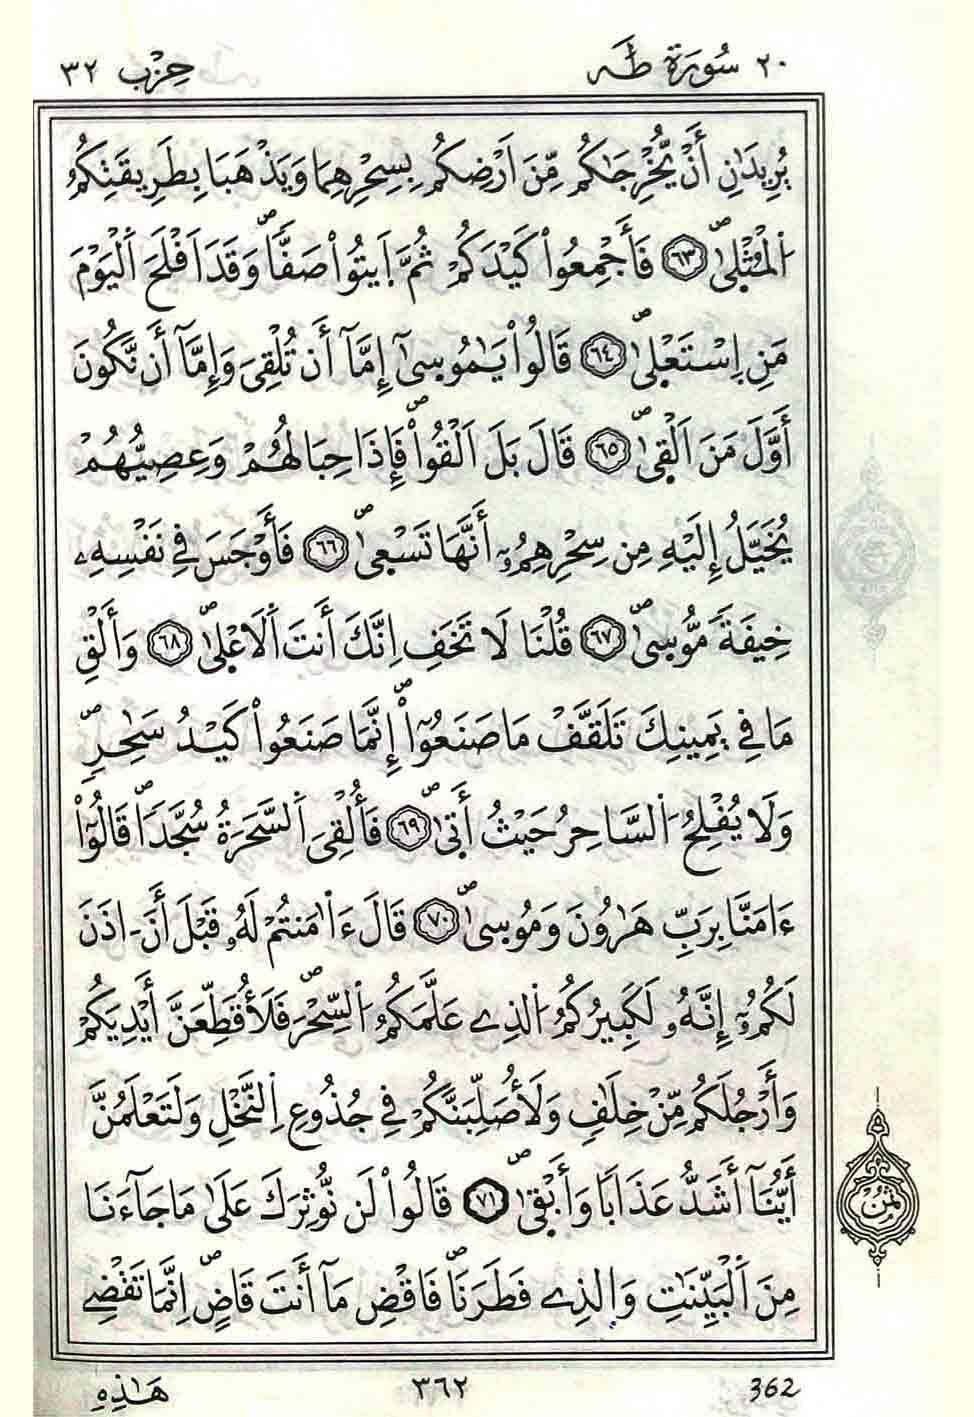 ٢٠ سُورَةُ طَهَ حِزْب ٣٢
يُرِيدَٰنِ أَنْ يُّخْرِجَٰكُم مِّنَ اَرْضِكُم بِسِحْرِهِمَا وَيَذْهَبَا بِطَرِيقَتِكُمُ
اُ۬لْمُثْل۪ىٰۖ ٦٣ فَأَجْمِعُواْ كَيْدَكُمْ ثُمَّ اَ۪يتُواْ صَفّاٗۖ وَقَدَ اَفْلَحَ اَ۬لْيَوْمَ
مَنِ اِ۪سْتَعْل۪ىٰۖ ٦٤ قَالُواْ يَٰمُوس۪ىٰٓ إِمَّآ أَن تُلْقِيَ وَإِمَّآ أَن نَّكُونَ
أَوَّلَ مَنَ اَلْق۪ىٰۖ ٦٥ قَالَ بَلَ اَلْقُواْۖ فَإِذَا حِبَالُهُمْ وَعِصِيُّهُمْ
يُخَيَّلُ إِلَيْهِ مِن سِحْرِهِمُۥٓ أَنَّهَا تَسْع۪ىٰۖ ٦٦ فَأَوْجَسَ فِي نَفْسِهِۦ
خِيفَةٗ مُّوس۪ىٰۖ ٦٧ قُلْنَا لَا تَخَفِ اِنَّكَ أَنتَ اَ۬لَاعْل۪ىٰۖ ٦٨ وَأَلْقِ
مَا فِي يَمِينِكَ تَلَقَّفْ مَا صَنَعُوٓاْۖ إِنَّمَا صَنَعُواْ كَيْدُ سَٰحِرٖۖ
وَلَا يُفْلِحُ اُ۬لسَّاحِرُ حَيْثُ أَت۪ىٰۖ ٦٩ فَأُلْقِيَ اَ۬لسَّحَرَةُ سُجَّداٗۖ قَالُوٓاْ
ءَامَنَّا بِرَبِّ هَٰرُونَ وَمُوس۪ىٰۖ ٧٠ قَالَ ءَا۬مَنتُمْ لَهُۥ قَبْلَ أَنَ اٰذَنَ
لَكُمُۥٓ إِنَّهُۥ لَكَبِيرُكُمُ اُ۬لذِے عَلَّمَكُمُ اُ۬لسِّحْرَۖ فَلَأُقَطِّعَنَّ أَيْدِيَكُمْ
وَأَرْجُلَكُم مِّنْ خِلَٰفٖ وَلَأُصَلِّبَنَّكُمْ فِي جُذُوعِ اِ۬لنَّخْلِ وَلَتَعْلَمُنَّ
أَيُّنَآ أَشَدُّ عَذَاباٗ وَأَبْق۪ىٰۖ ٧١ قَالُواْ لَن نُّوثِرَكَ عَلَىٰ مَا جَآءَنَا
مِنَ اَ۬لْبَيِّنَٰتِ وَالذِے فَطَرَنَاۖ فَاقْضِ مَآ أَنتَ قَاضٍۖ اِنَّمَا تَقْضِے
ثُمُن
هَٰذِهِ ٣٦٢ 362